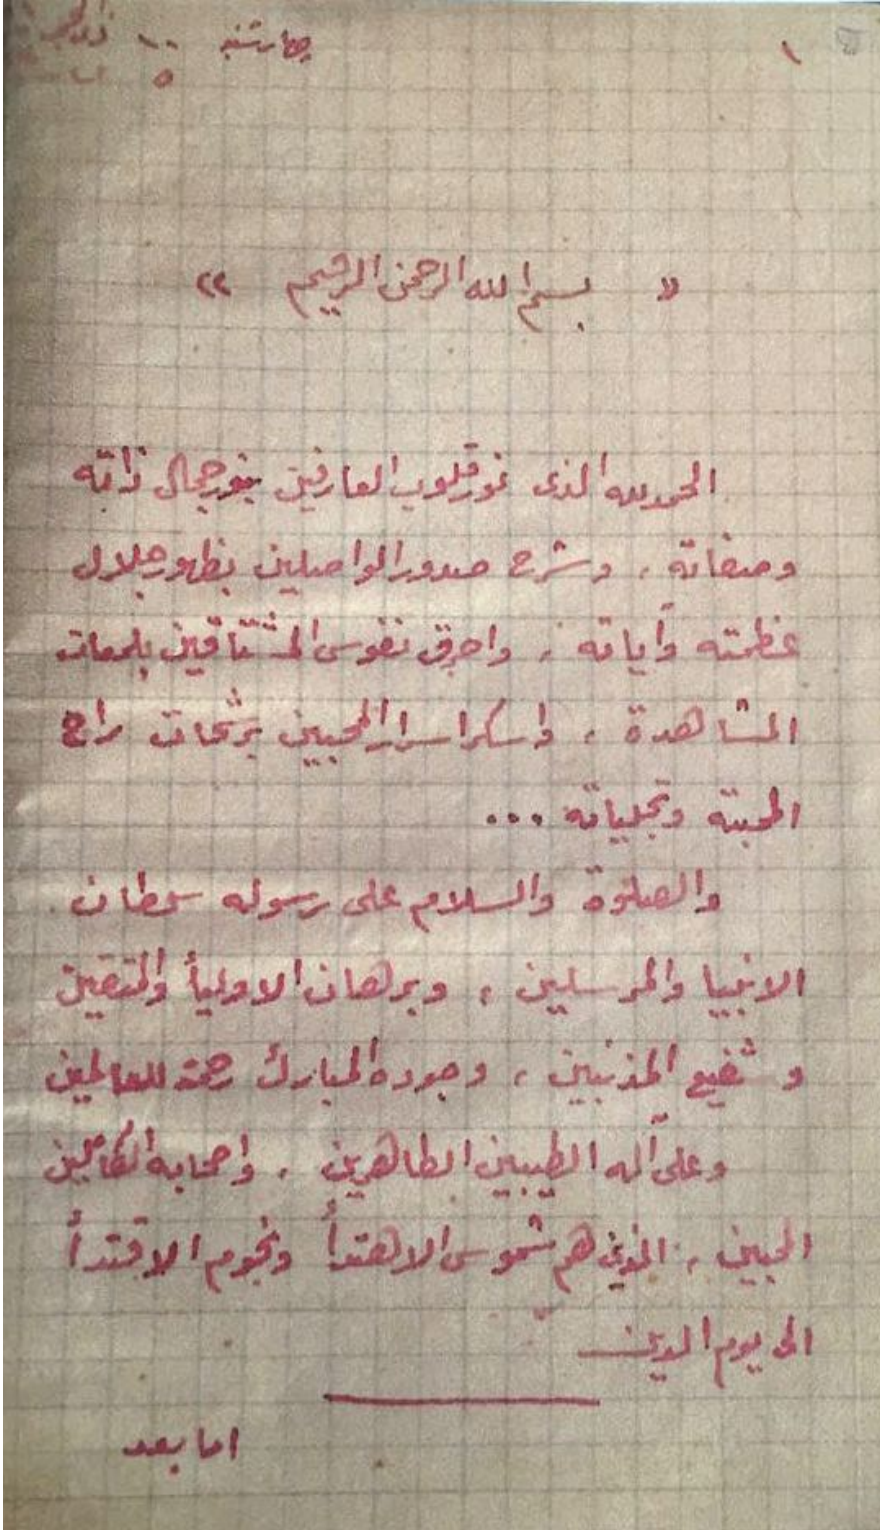 ١
چهارشنبه ١٠
٥
« بسم الله الرحمن الرحيم »
الحمد لله الذى نور قلوب العارفين بنور جمال ذاته
وصفاته ، وشرح صدور الواصلين بظهور جلال
عظمته وآياته ، واحرق نفوس المشتاقين بلمعات
المشاهدة ، واسكر اسرار المحبين برشحات راح
المحبته وتجلياته ...
والصلوة والسلام على رسوله سلطان
الانبيا والمرسلين ، وبرهان الاوليأ والمتقين
وشفيع المذنبين ، وجوده المبارك رحمة للعالمين
وعلى آله الطيبين الطاهرين ، واصحابه الكاملين
المحبين ، الذين هم شموس الاهتدأ ونجوم الاقتدأ
الى يوم الدين
اما بعد